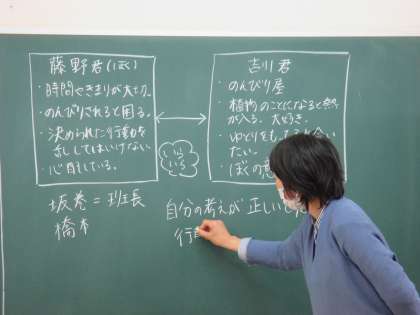 藤野君(ぼく)
・時間やきまりが大切。
・のんびりされると困る。
・決められた行動を
乱してはいけない。
・心配している。
吉川君
・のんびり屋
・植物のことになると熱
が入る。大好き。
・ゆとりをもって
たい。
・ぼくの
坂巻=班長
橋本
自分の考えが正しいと
行